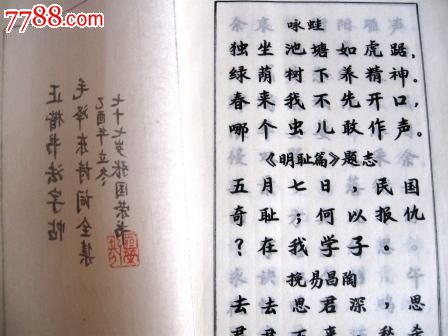 www.7788.com
七十七岁张国荣书
乙酉年立冬
毛泽东诗词全集
正楷书法字帖
咏蛙
独坐池塘如虎踞，
绿荫树下养精神。
春来我不先开口，
哪个虫儿敢作声。
《明耻篇》题志
五月七日，民国
奇耻；何以报仇
？在我学子。
挽易昌陶
去去思君深，思